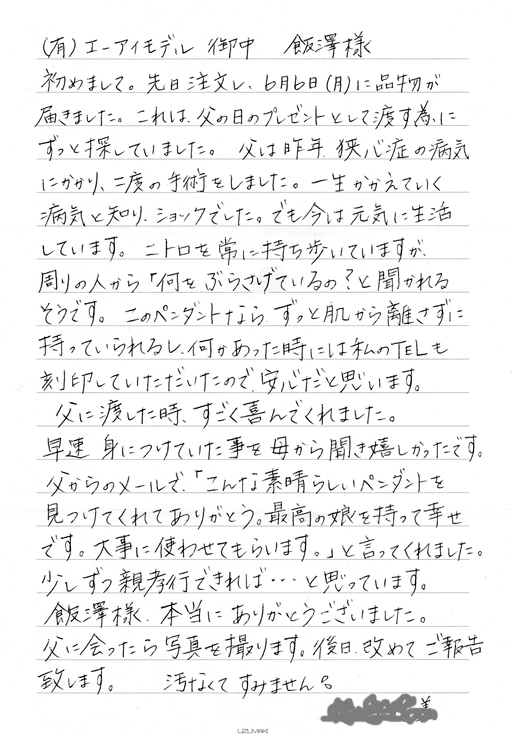 (有)エーアイモデル 御中　飯澤様
初めまして。先日注文し、6月6日(月)に品物が
届きました。これは、父の日のプレゼントとして渡す為に
ずっと探していました。 父は昨年、狭心症の病気
にかかり、二度の手術をしました。一生かかえていく
病気と知り、ショックでした。でも今は元気に生活
しています。ニトロを常に持ち歩いていますが、
周りの人から「何をぶらさげているの？と聞かれる
そうです。このペンダントなら、ずっと肌から離さずに
持っていられるし、何かあった時には私のTELも
刻印していただいたので、安心だと思います。
父に渡した時、すごく喜んでくれました。
早速 身につけていた事を母から聞き嬉しかったです。
父からのメールで、「こんな素晴らしいペンダントを
見つけてくれてありがとう。最高の娘を持って幸せ
です。大事に使わせてもらいます。」と言ってくれました。
少しずつ親孝行できれば…と思っています。
飯澤様、本当にありがとうございました。
父に会ったら写真を撮ります。後日、改めてご報告
致します。　汚なくてすみません。
美
UZUMAKI